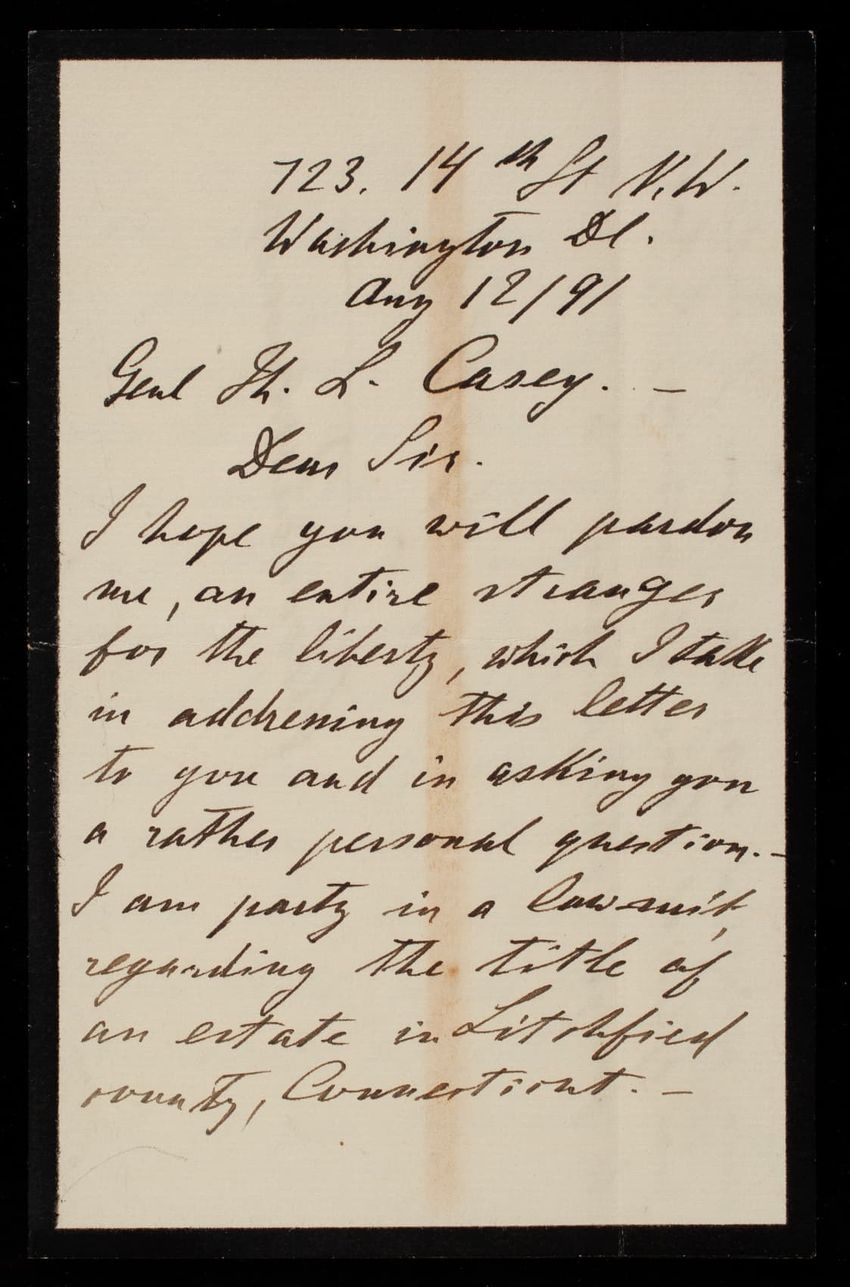 723. 14th St N.W.
Washington DC.
Aug 12/91
Genl Th. L. Casey. —
Dear Sir.
I hope you will pardon
me, an entire stranger
for the liberty, which I take
in addressing this letter
to you and in asking you
a rather personal question. —
I am party in a lawsuit,
regarding the title of
an estate in Litchfied
county, Connecticut. —